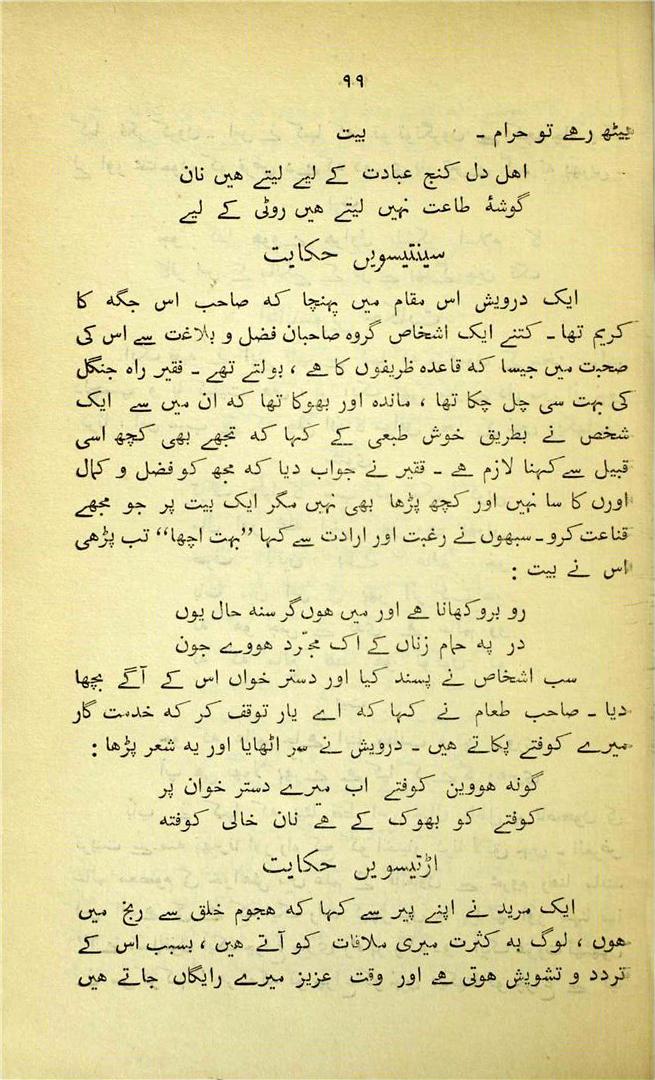 ۹۹
بیٹھ رہے تو حرام ـ بیت
اهل دل کنج عبادت کے لیے لیتے هیں نان
گوشۂ طاعت نہیں لیتے هیں روٹی کے لیے
سینتیسویں حکایت
ایک درویش اس مقام میں پہنچا که صاحب اس جگه کا
کریم تھا ـ کتنے ایک اشخاص گروه صاحبان فضل و بلاغت سے اس کی
صحبت میں جیسا که قاعده ظریفوں کا هے ، بولتے تھے ـ فقیر راه جنگل
کی بہت سی چل چکا تھا ، مانده اور بھوکا تھا که ان میں سے ایک
شخص نے بطریق خوش طبعی کے کہا که تجھے بھی کچھ اسی
قبیل سے کہنا لازم هے ـ فقیر نے جواب دیا که مجھ کو فضل و کمال
اورن کا سا نہیں اور کچھ پڑھا بھی نہیں مگر ایک بیت پر جو مجھے
قناعت کرو ـ سبھوں نے رغبت اور ارادت سے کہا ”بہت اچھا“ تب پڑھی
اس نے بیت :
رو برو کھانا هے اور میں هوں گرسنه حال یوں
در په حمام زناں کے اک مجرّد هووے جون
سب اشخاص نے پسند کیا اور دستر خواں اس کے آگے بچھا
دیا ـ صاحب طعام نے کہا که اے یار توقف کر که خدمت گار
میرے کوفتے پکاتے هیں ـ درویش نے سر اٹھایا اور یه شعر پڑھا :
گونه هووین کوفتے اب میرے دستر خوان پر
کوفتے کو بھوک کے هے نان خالی کوفته
اڑتیسویں حکایت
ایک مرید نے اپنے پیر سے کہا که هجوم خلق سے رنج میں
هوں ، لوگ به کثرت میری ملاقات کو آتے هیں ، بسبب اس کے
تردد و تشویش هوتی هے اور وقت عزیز میرے رایگاں جاتے هیں